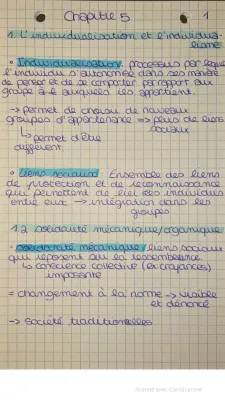 Chapitre 5
1
1. L'individualisation et l'individua-
lisme
• Individualisation: processus par lequel
l'individu s'autonomise dans ses manière
de penser et de se comporter par rapport aux
groupe à auxquels ils appartient.
→ permet de choisir de nouveaux
groupes d'appartenance → plus de liens
sociaux
↳ permet d'être
différent.
• Liens sociaux: Ensemble des liens
de protection et de reconnaissance
qui permettent de lier des individus
entre eux → intégration dans les
groupes
1.2 solidarité mécanique/organique
• solidarité mécanique: liens sociaux
qui reposent sur la ressemblance.
↳ conscience collective (ex: croyances)
imposante
= changement à la norme → visible
et dénoncé
→ société traditionnelles
Scanned with CamScanner